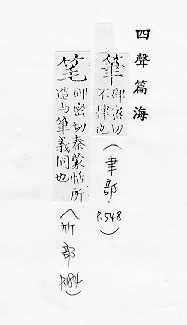 四聲篇海
筆
鄙密切
不律也
(聿部 P.548)
笔
鄙密切秦蒙恬所
造与筆義同也
(竹部